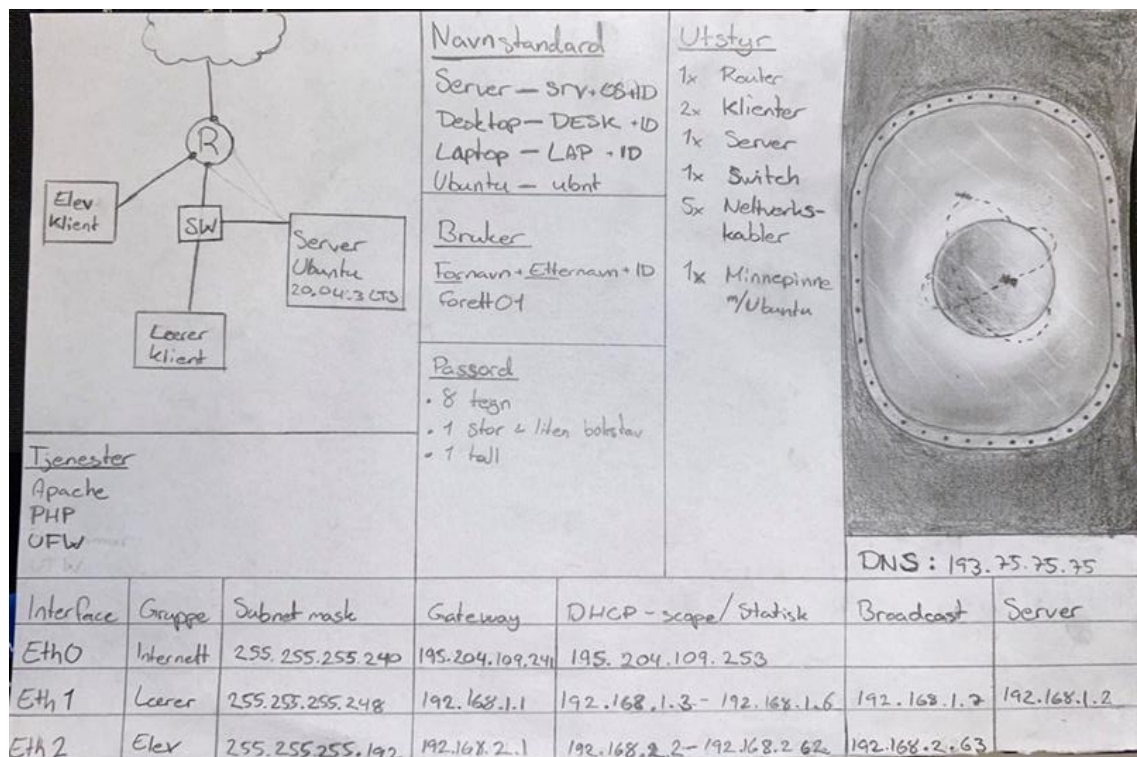 R
Elev
Klient
SW
Server
Ubuntu
20.04.3 LTS
Lærer
Klient
Tjenester
Apache
PHP
UFW
Navnstandard
Server – srv+OS+ID
Desktop – DESK +ID
Laptop – LAP +ID
Ubuntu – ubnt
Bruker
Fornavn + Etternavn + ID
ForEtt01
Passord
• 8 tegn
• 1 stor & liten bokstav
• 1 tall
Utstyr
1x Router
2x Klienter
1x Server
1x Switch
5x Nettverks-
kabler
1x Minnepinne
m/Ubuntu
DNS: 193.75.75.75
Interface Gruppe Subnet mask Gateway DHCP-scope/Statisk Broadcast Server
Eth0 Internett 255.255.255.240 195.204.109.241 195.204.109.253
Eth1 Lærer 255.255.255.248 192.168.1.1 192.168.1.3-192.168.1.6 192.168.1.7 192.168.1.2
Eth2 Elev 255.255.255.192 192.168.2.1 192.168.2.2-192.168.2.62 192.168.2.63